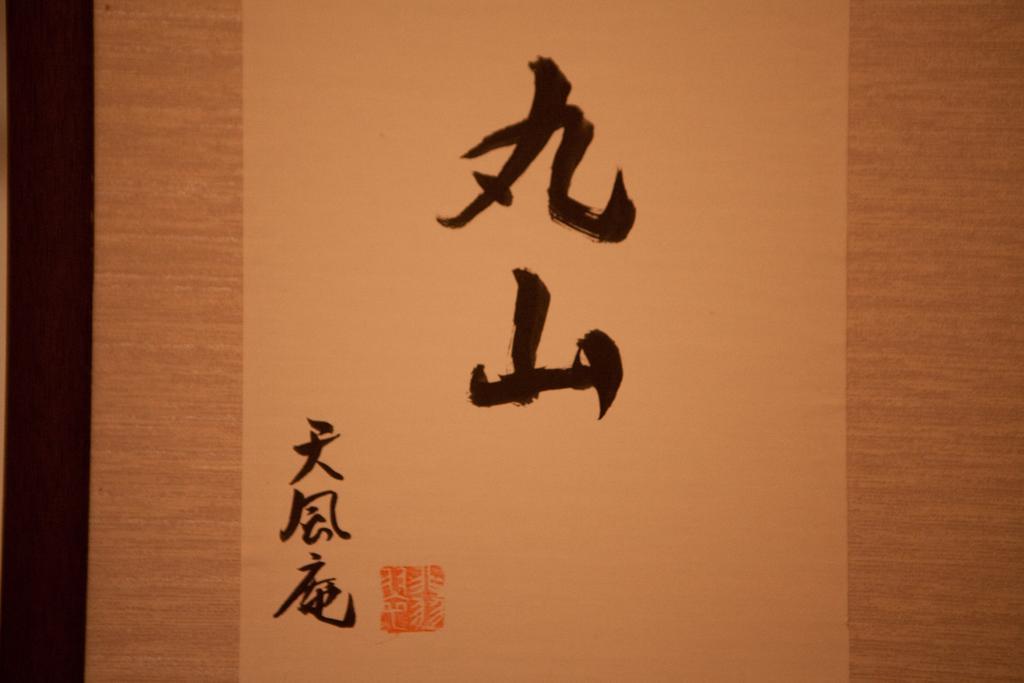 丸山
天風庵